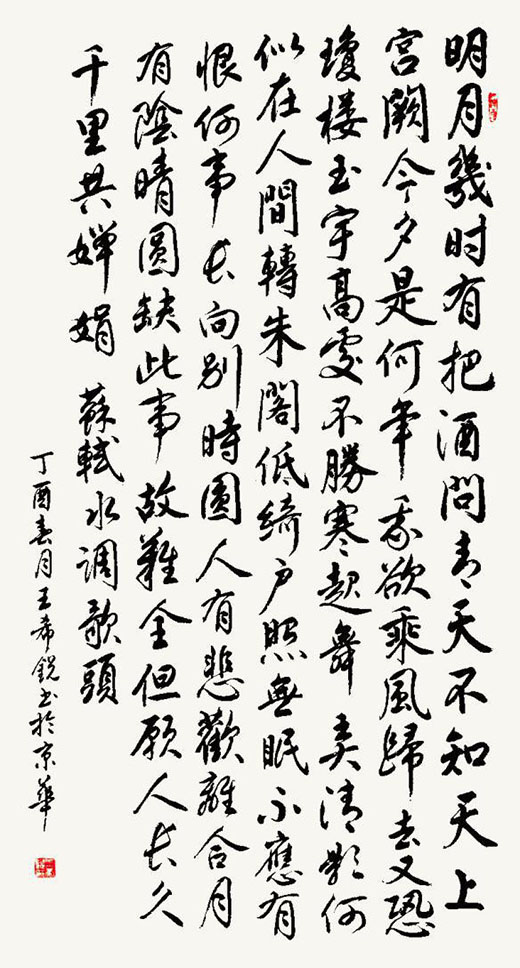 明月幾时有把酒問青天不知天上
宮闕今夕是何年我欲乘風歸去又恐
瓊楼玉宇高處不勝寒起舞弄清影何
似在人間轉朱閣低綺户照無眠不應有
恨何事长向别時圓人有悲歡離合月
有陰晴圓缺此事故難全但願人长久
千里共嬋娟 蘇軾水调歌頭
丁酉春月王希銳书於京華